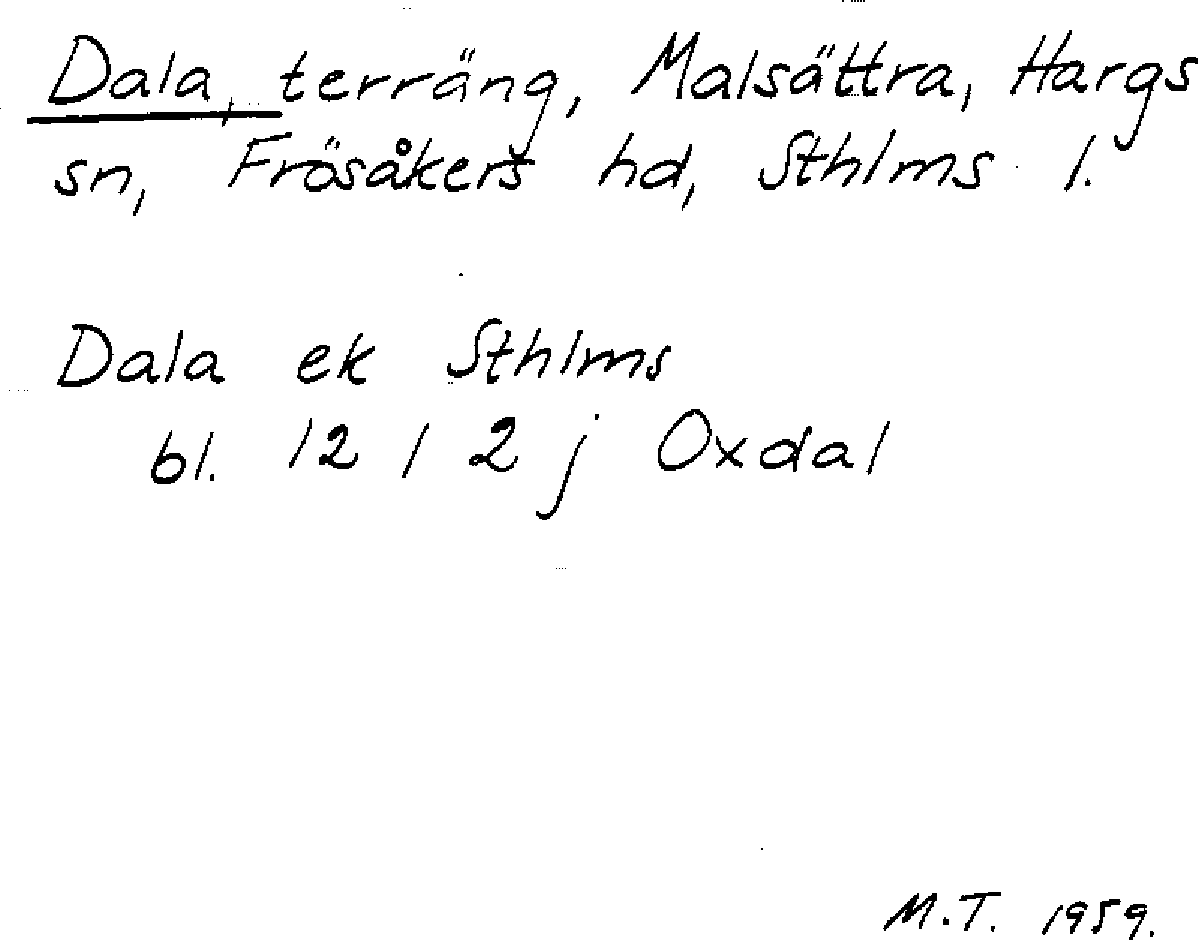 Dala, terräng, Malsättra, Hargs
sn, Frösåkers hd, Sthlms l.
Dala ek Sthlms
bl. 12 I 2 j Oxdal
M.T. 1959.